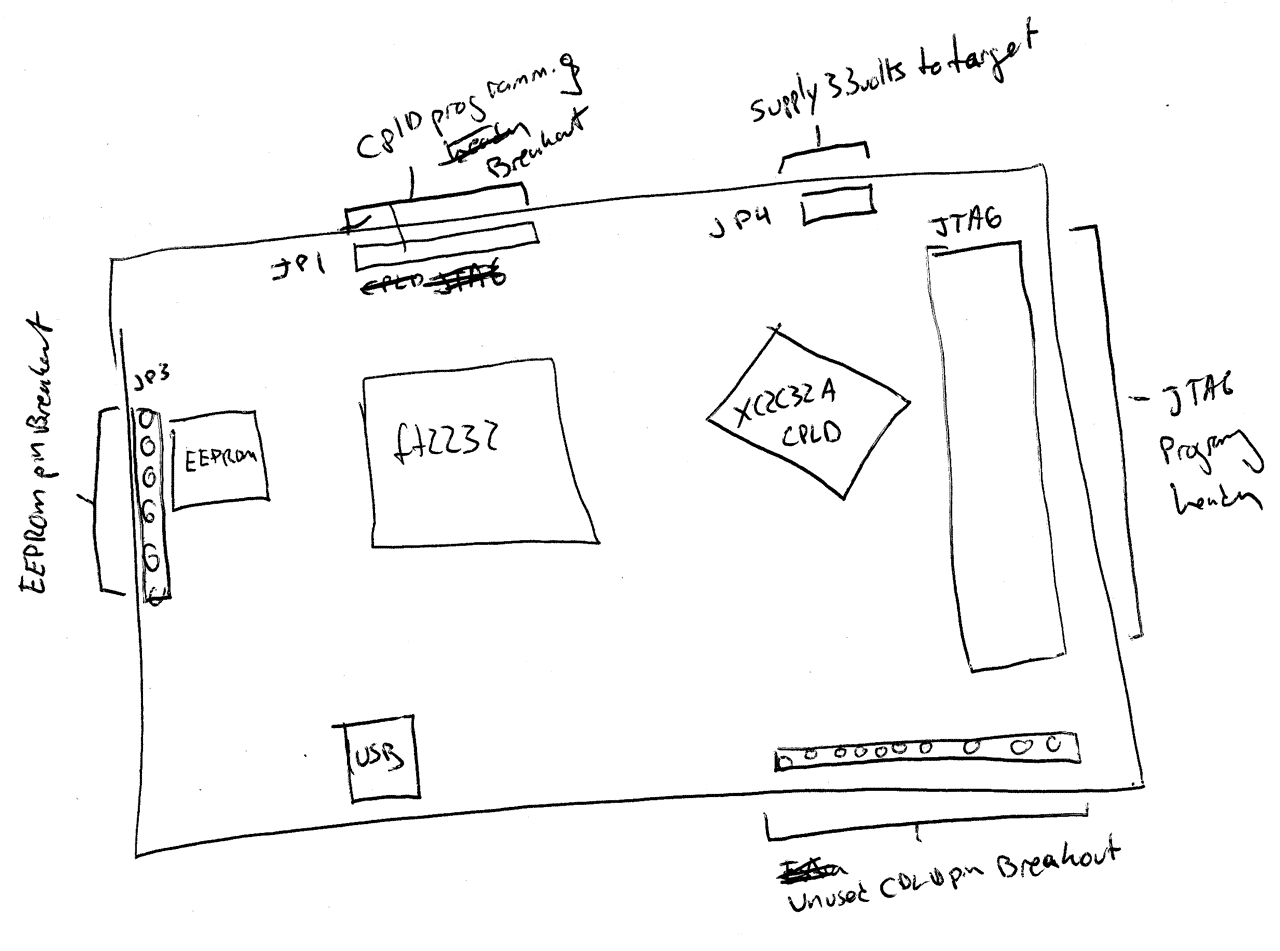 CPLD programming
Breakout
Supply 33volts to target
JP1
JP4
JTAG
EEPROM pin Breakout
JP3
EEPROM
ft2232
XC2C32A
CPLD
JTAG
Programing
header
USB
Unused CPLD pin Breakout